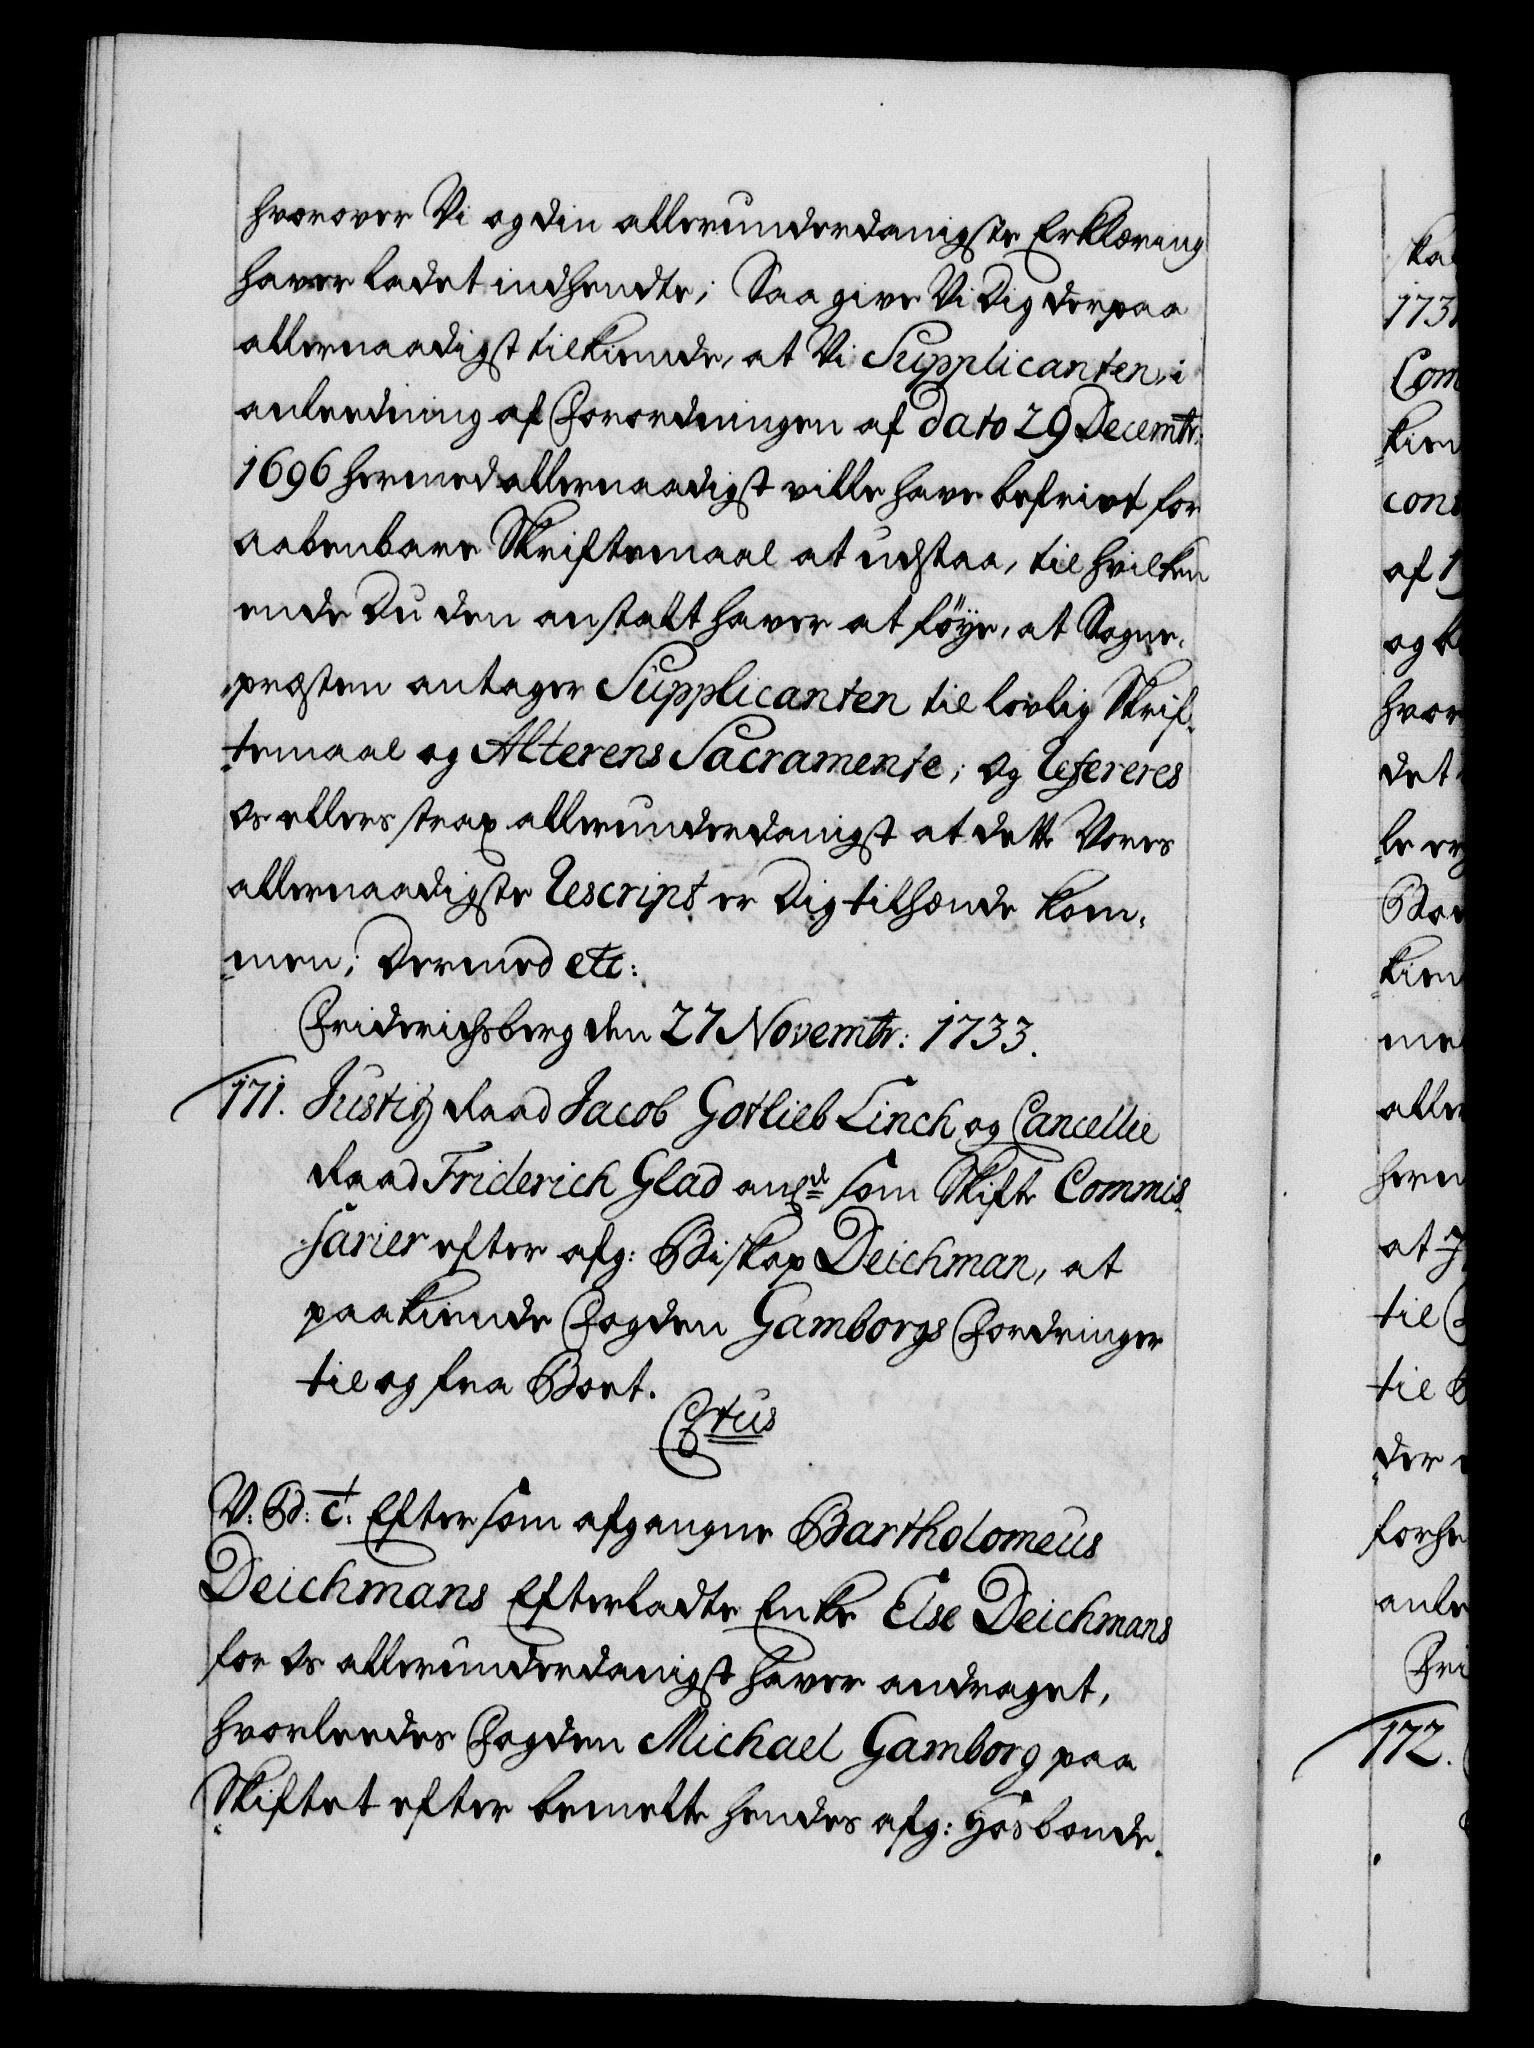 hvorover Vi og din allerunderdanigste Erklæring
haver ladet indhendte; Saa give Vi Dig derpaa
allernaadigst tilkiende, at Vi Supplicanten, i
anledning af Forordningen af dato 29 Decemtr:
1696 hermed allernaadigst ville have befriet for
aabenbare Skriftemaal at udstaa, til hvilken
ende Du den anstalt haver at föÿe, at Sogne-
præsten antager Supplicanten til lovlig Skrif-
temaal og Alterens Sacramente; og Refereres
Os ellers strax allerunderdanigst at dette Vores
allernaadigste Rescript er Dig tilhænde kom-
men; Dermed etc:
Friderichsberg den 27 Novembr: 1733.
171. Justitz Raad Jacob Gotlieb Linch og Cancellie
Raad Friderich Glad anl: som Skifte Commis-
sarier efter afg: Biskop Deichman, at
paakiende Fogden Gamborgs Fordringer
til og fra Boet.
C 6tus
V: Bd: c. Eftersom afgangne Bartholomeus
Deichmans Efterladte Enke Else Deichmans
for Os allerunderdanigst haver andraget,
hvorleedes Fogden Michael Gamborg paa
Skiftet efter bemelte hendes afg: Hosbonde.
skal
1731
Com
kien
con
af 1
og
hvor
det
le
Bo
kien
me
aller
herm
at
til
til
der
forhe
anle
Fri
172.